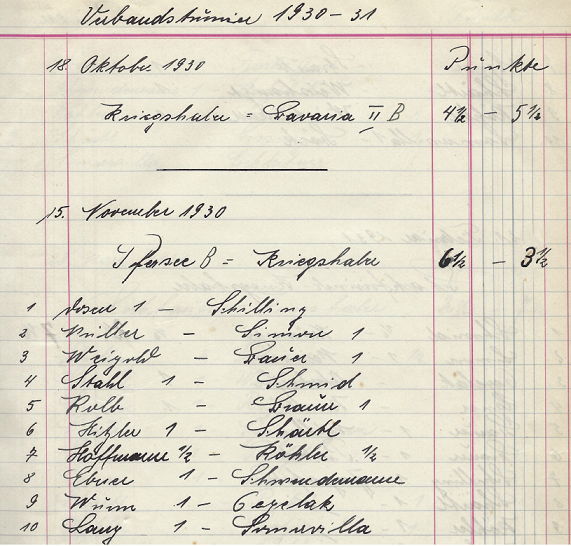 Verbandsturnier 1930-31
18. Oktober 1930 Punkte
Kriegshaber = Bavaria II B 4½ - 5½
15. November 1930
Pfersee B = Kriegshaber 6½ - 3½
1 1 - Schilling
2 Müller - Simon 1
3 Weigold - Bauer 1
4 Stahl 1 - Schmid
5 Kolb - Braun 1
6 Hitzler 1 - Schärtl
7 Hoffmann ½ - Köhler ½
8 Ebner 1 - Schwendemann
9 Wurm 1 -
10 Lang 1 -